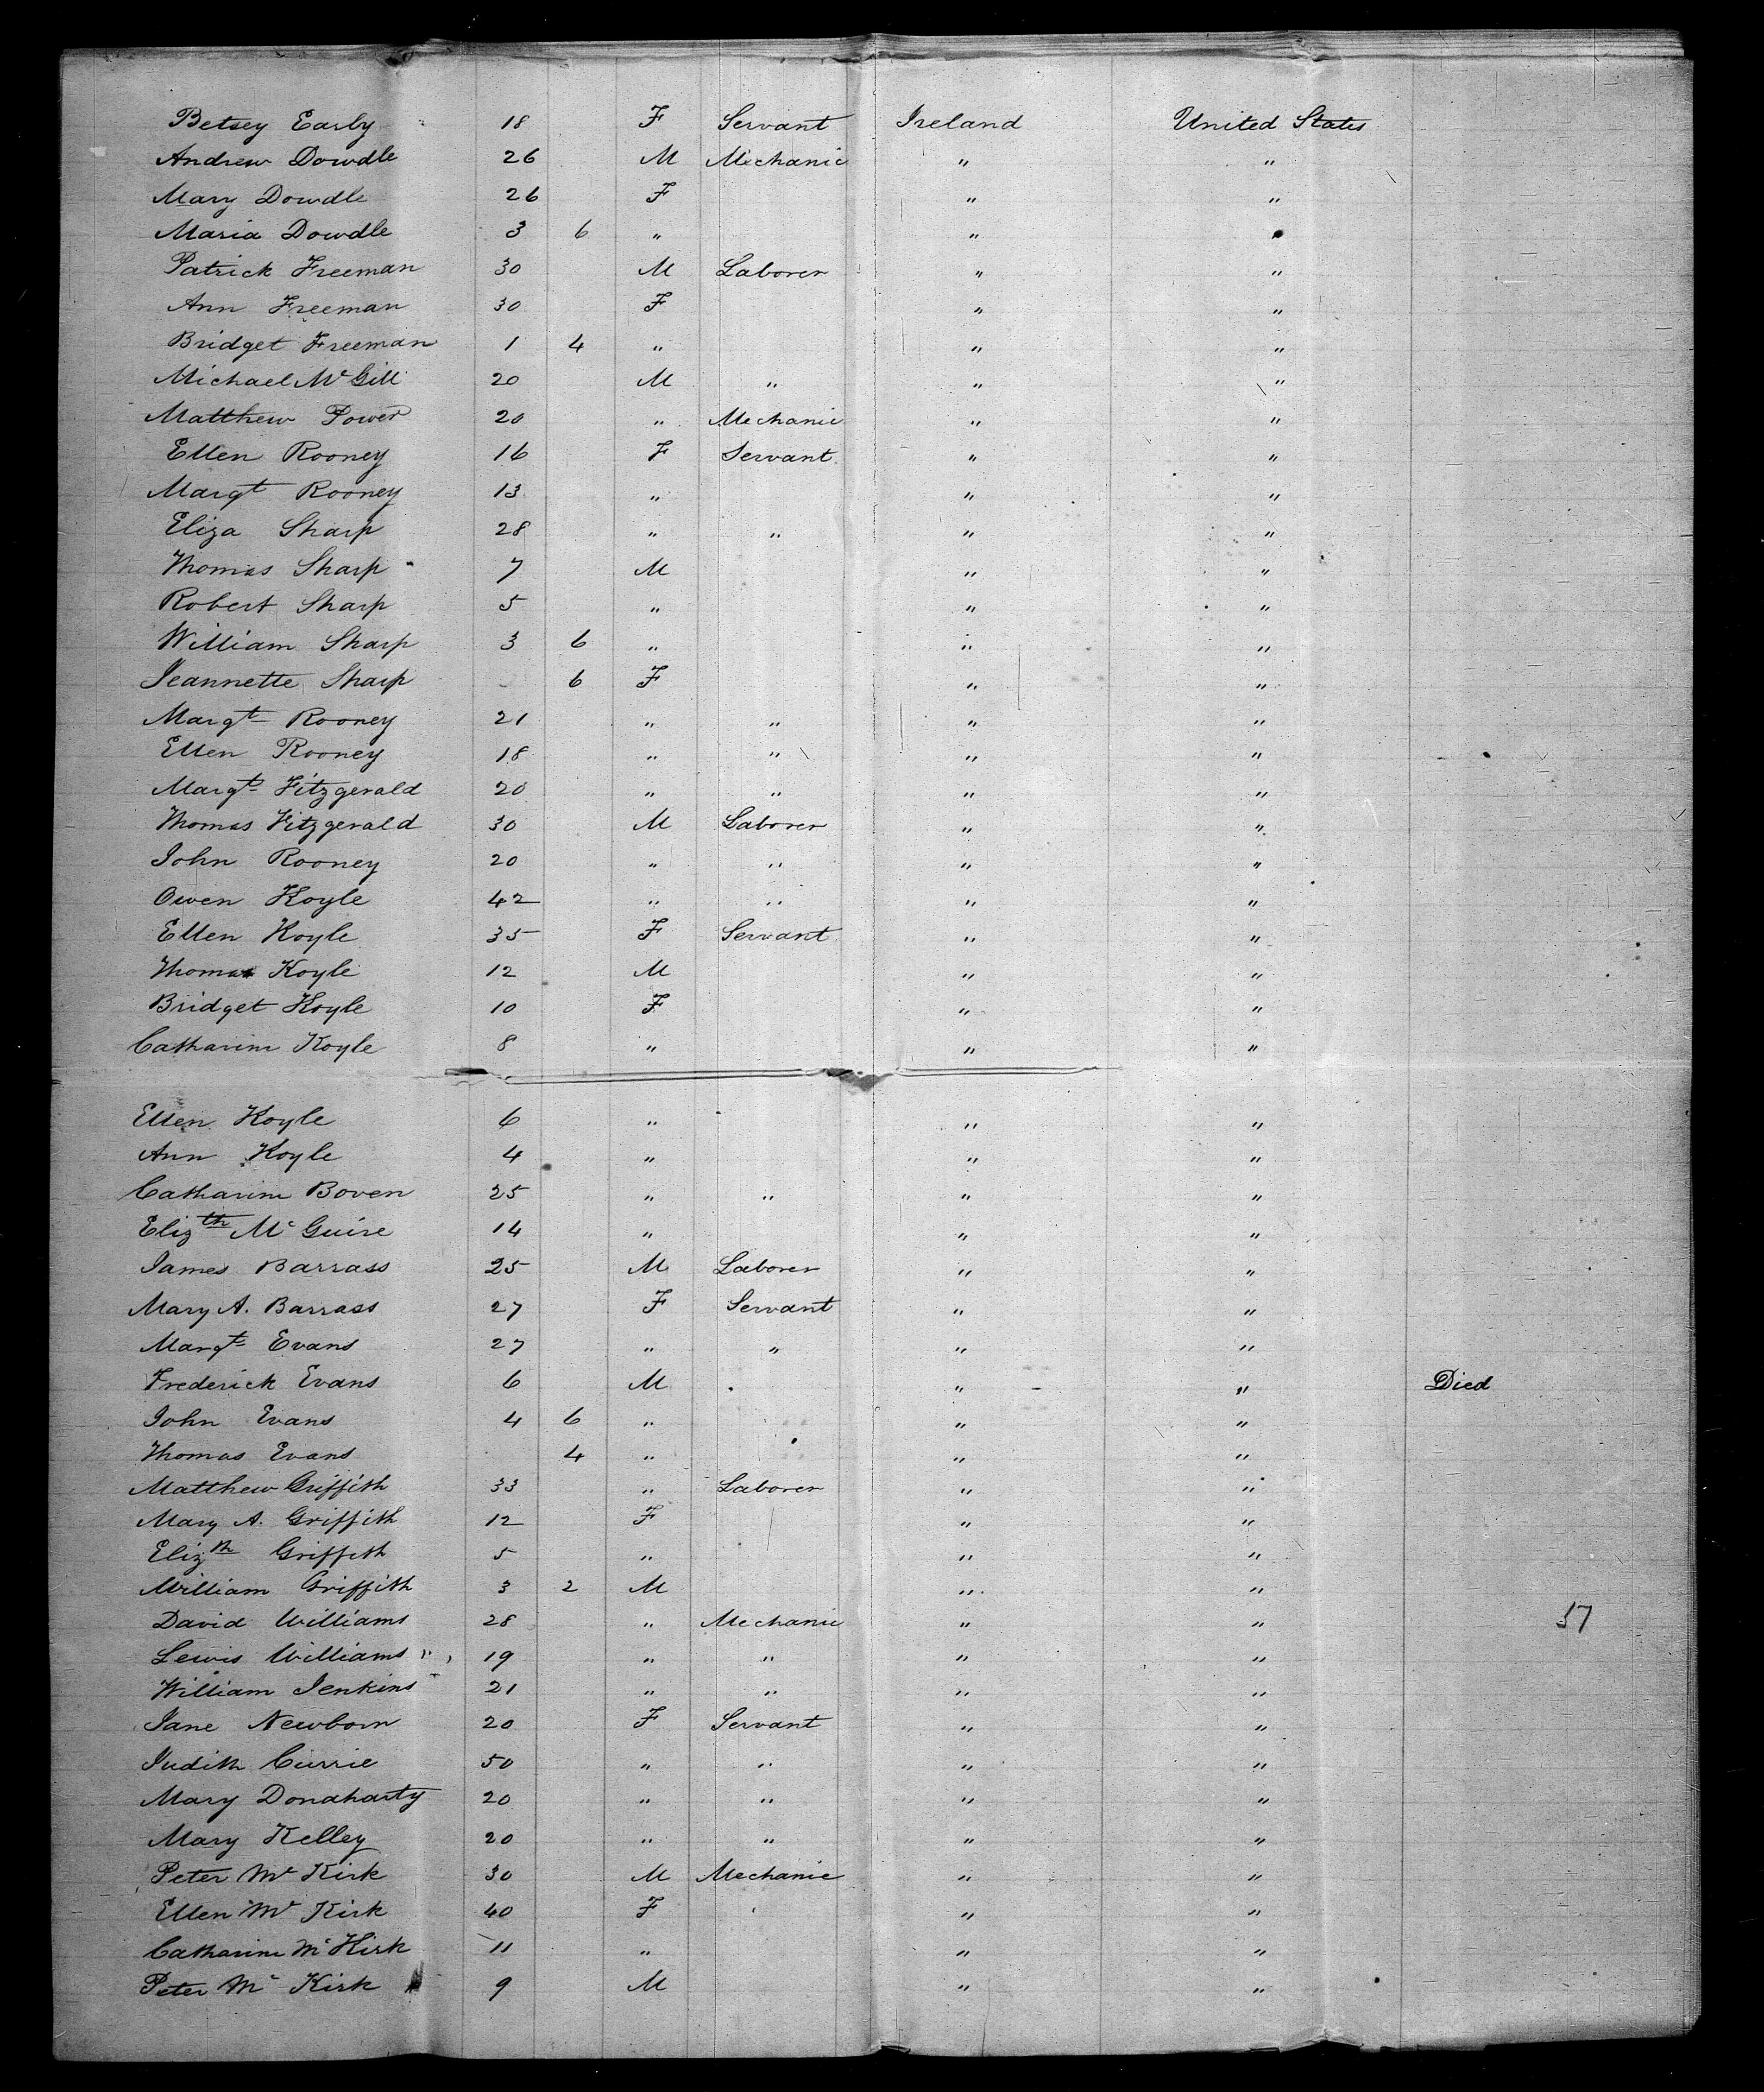 Betsey Early 18 F Servant Ireland United States
Andrew Dowdle 26 M Mechanic " "
Mary Dowdle 26 F " "
Maria Dowdle 3 6 " " "
Patrick Freeman 30 M Laborer " "
Ann Freeman 30 F " "
Bridget Freeman 1 4 " " "
Michael McGill 20 M " " "
Matthew Power 20 " Mechanic " "
Ellen Rooney 16 F Servant " "
Margt Rooney 13 " " "
Eliza Sharp 28 " " " "
Thomas Sharp 7 M " "
Robert Sharp 5 " " "
William Sharp 3 6 " " "
Jeannette Sharp - 6 F " "
Margt Rooney 21 " " " "
Ellen Rooney 18 " " " "
Margt Fitzgerald 20 " " " "
Thomas Fitzgerald 30 M Laborer " "
John Rooney 20 " " " "
Owen Koyle 42 " " " "
Ellen Koyle 35 F Servant " "
Thomas Koyle 12 M " "
Bridget Koyle 10 F " "
Catharine Koyle 8 " " "
Ellen Koyle 6 " " "
Ann Koyle 4 " " "
Catharine Boven 25 " " " "
Elizth McGuire 14 " " "
James Barrass 25 M Laborer " "
Mary A. Barrass 27 F Servant " "
Margt Evans 27 " " " "
Frederick Evans 6 M " " Died
John Evans 4 6 " " "
Thomas Evans 4 " " "
Matthew Griffith 33 " Laborer " "
Mary A. Griffith 12 F " "
Elizth Griffith 5 " " "
William Griffith 3 2 M " "
David Williams 28 " Mechanic " " 57
Lewis Williams 19 " " " "
William Jenkins 21 " " " "
Jane Newborn 20 F Servant " "
Judith Currie 50 " " " "
Mary Donaharty 20 " " " "
Mary Kelley 20 " " " "
Peter Mc Kirk 30 M Mechanic " "
Ellen Mc Kirk 40 F " "
Catharine Mc Kirk 11 " " "
Peter Mc Kirk 9 M " "